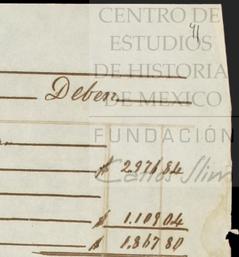 CENTRO DE
ESTUDIOS
DE HISTORIA
DE MEXICO
FUNDACIÓN
Carlos Slim
Deben
$ 2.976.84
$ 1.109.04
$ 1.867.80